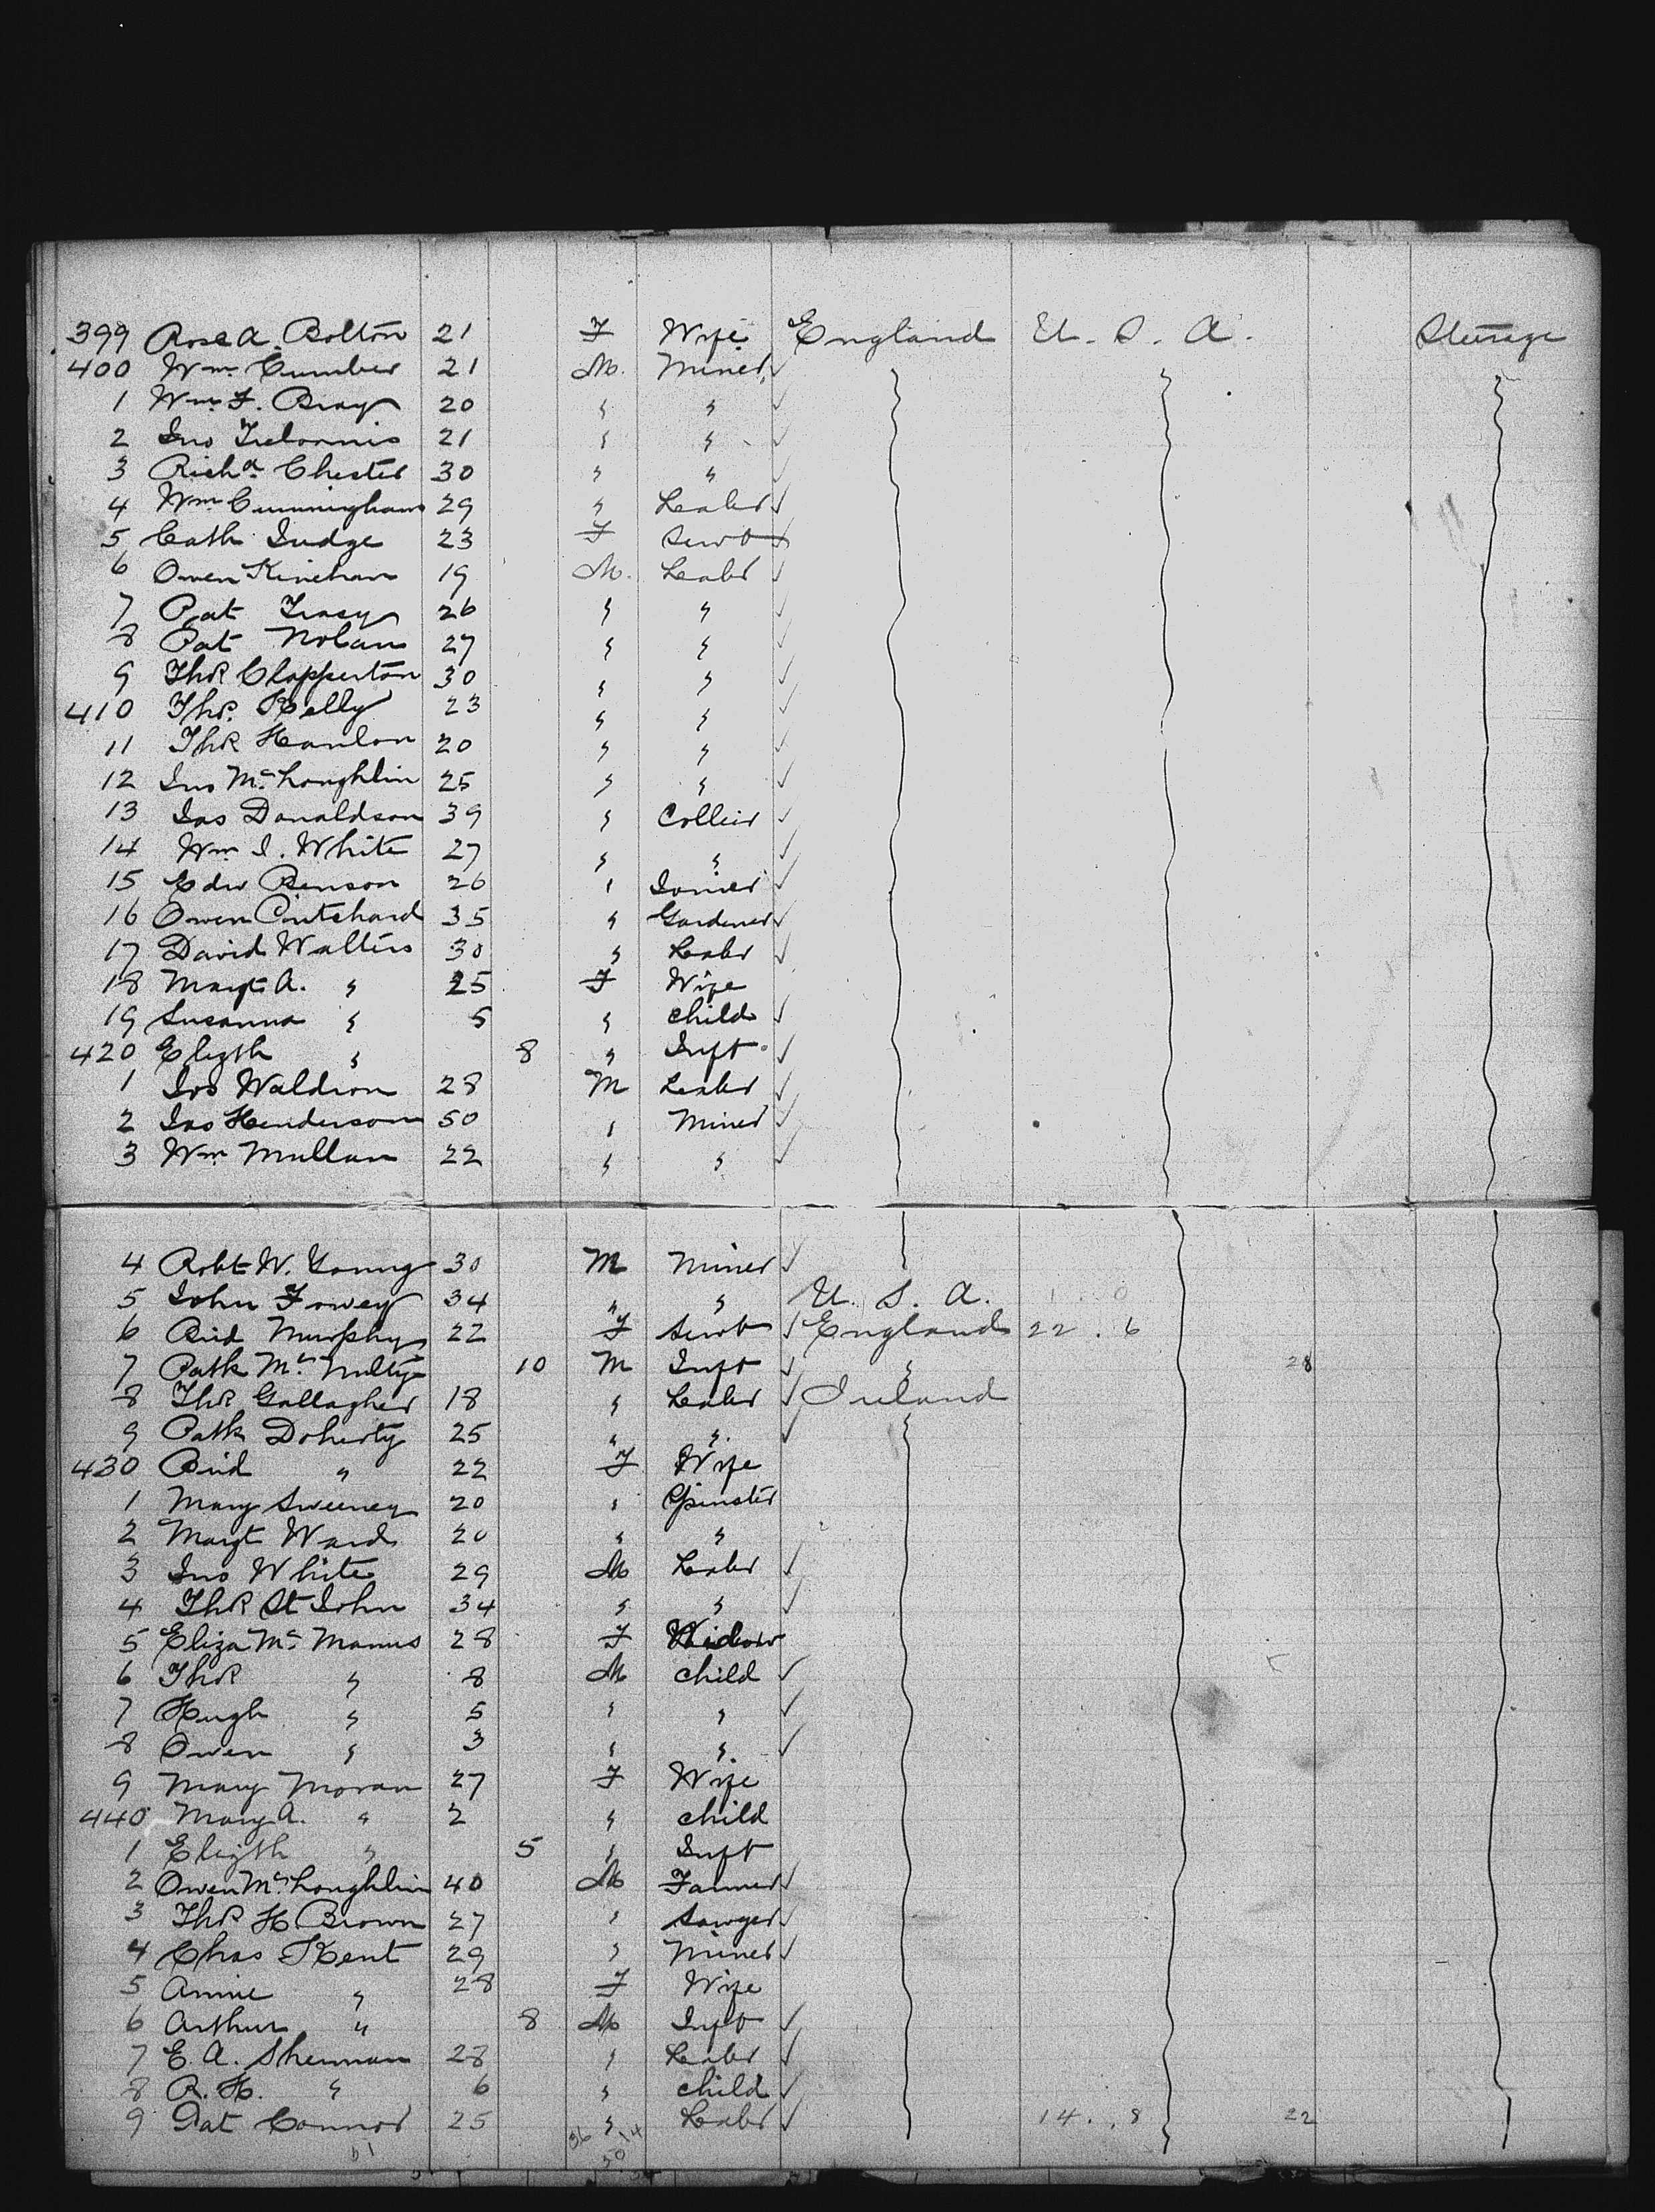 399 Rose A. Bolton 21 F Wife England U. S. A. Steerage
400 Wm Cumber 21 M. Miner
1 Wm F. Bray 20 " "
2 Jno 21 " "
3 Richd Chester 30 " "
4 Wm Cunningham 29 " Labr
5 Cath Judge 23 F Servt
6 Owen Kinehan 19 M. Labr
7 Pat Tracy 26 " "
8 Pat Nolan 27 " "
9 Thos Clapperton 30 " "
410 Thos. Kelly 23 " "
11 Thos Hanlon 20 " "
12 Jno McLoughlin 25 " "
13 Jas Donaldson 39 " Collier
14 Wm J. White 27 " "
15 Edw Benson 26 " Joiner
16 Owen Pritchard 35 " Gardener
17 David Walters 30 " Labr
18 Margt A. " 25 F Wife
19 Susanna " 5 " child
420 Elizth " 8 " Inft
1 Jos Waldron 28 M Labr
2 Jas Henderson 50 " Miner
3 Wm Mullan 22 " "
4 Robt W. Young 30 M Miner
5 John Fowey 34 " " U. S. A.
6 Brid Murphy 22 F Servt England 22 . 6
7 Patk McNulty 10 M Inft " 28
8 Thos Gallagher 18 " Labr Ireland
9 Patk Doherty 25 " " "
430 Brid " 22 F Wife
1 Mary Sweeney 20 " Spinster
2 Margt Ward 20 " "
3 Jno White 29 M Labr
4 Thos St John 34 " "
5 Eliza McManus 28 F Widow
6 Thos " 8 M child
7 Hugh " 5 " "
8 Owen " 3 " "
9 Mary Moran 27 F Wife
440 Mary A. " 2 " child
1 Elizth " 5 " Inft
2 Owen McLoughlin 40 M Farmer
3 Thos H. Brown 27 " Sawyer
4 Chas Kent 29 " Miner
5 Annie " 28 F Wife
6 Arthur " 8 M Inft
7 E. A. Shennan 28 " Labr
8 R. H. " 6 " child
9 Pat Connor 25 " Labr 14 . 8 22
51 36 14
50